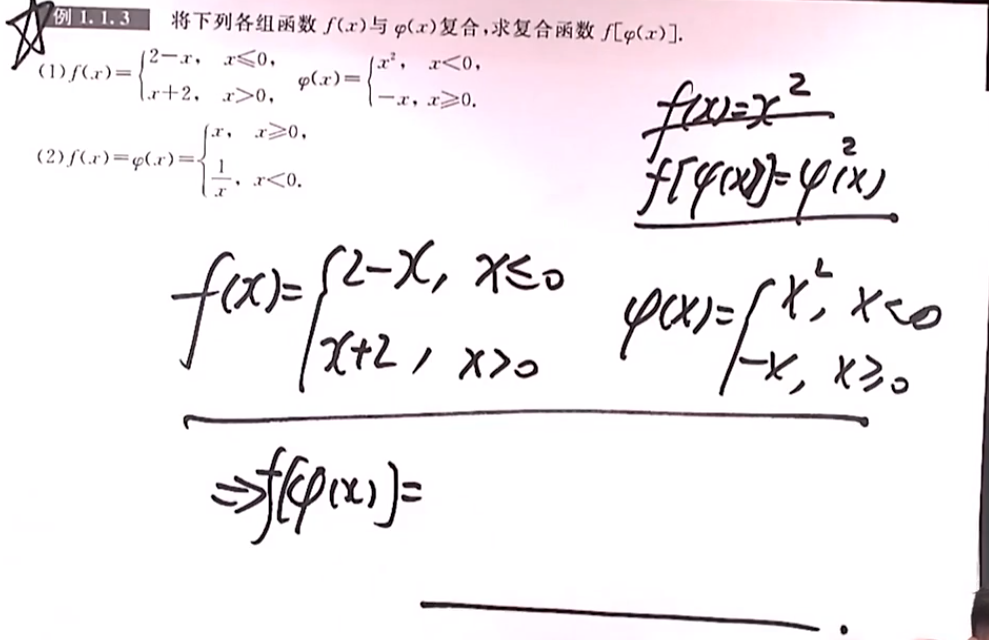 例 1.1.3 将下列各组函数 f(x)与 φ(x)复合,求复合函数 f[φ(x)].
(1) f(x)={2-x, x≤0, x+2, x>0, φ(x)={x², x<0, -x, x≥0.
(2) f(x)=φ(x)={x, x≥0, 1/x, x<0.
f(x)=x²
f[φ(x)]=φ²(x)
f(x)={2-x, x≤0 x+2, x>0 φ(x)={x², x<0 -x, x≥0
⇒f[φ(x)]=